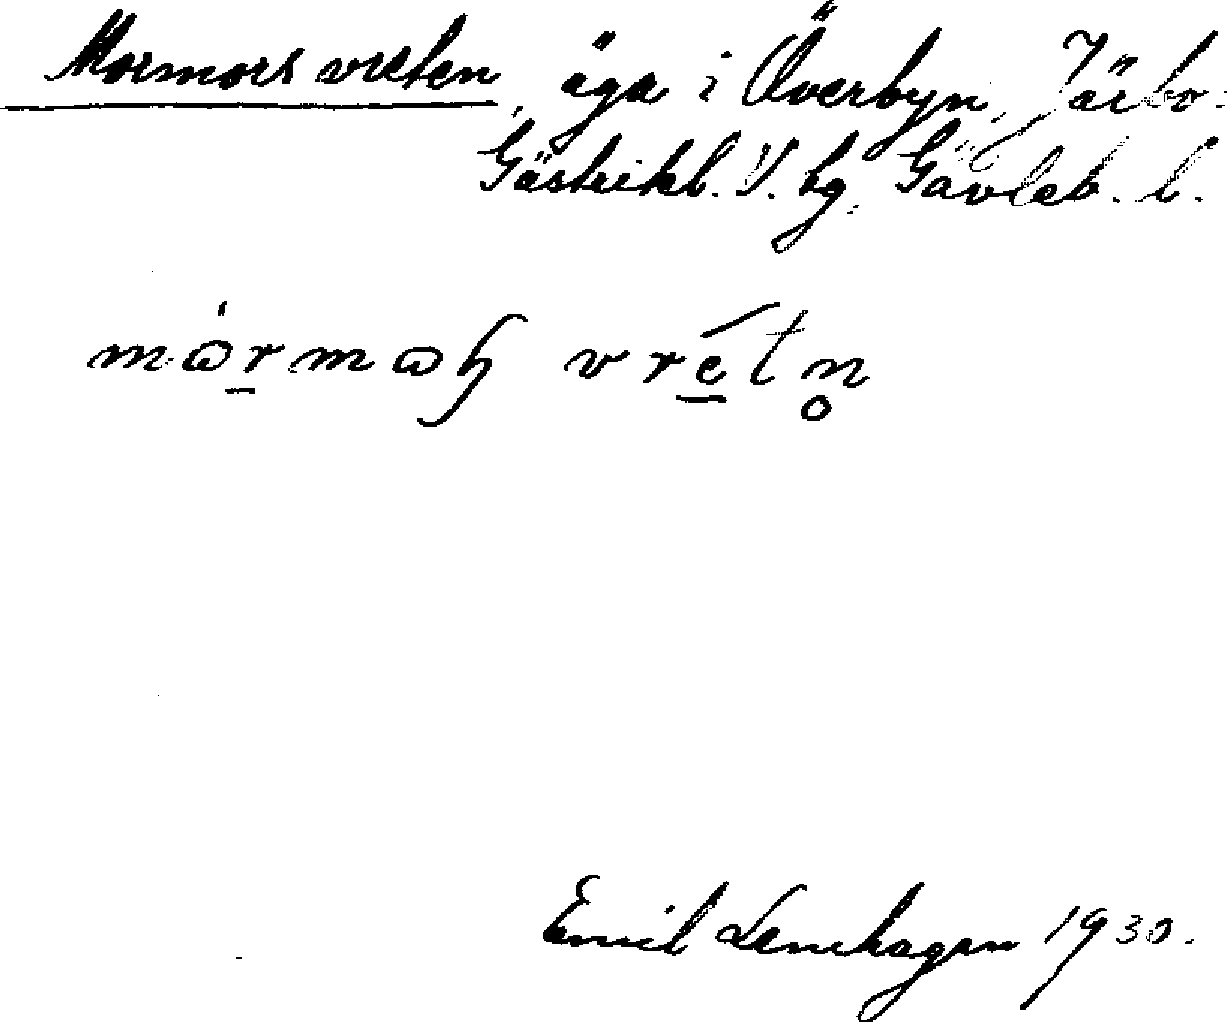 Mormors vreten, äga i Överbyn, Järbo.
Gästrikl. V. tg, Gävleb. l.
Emil Lenehagen 1930.